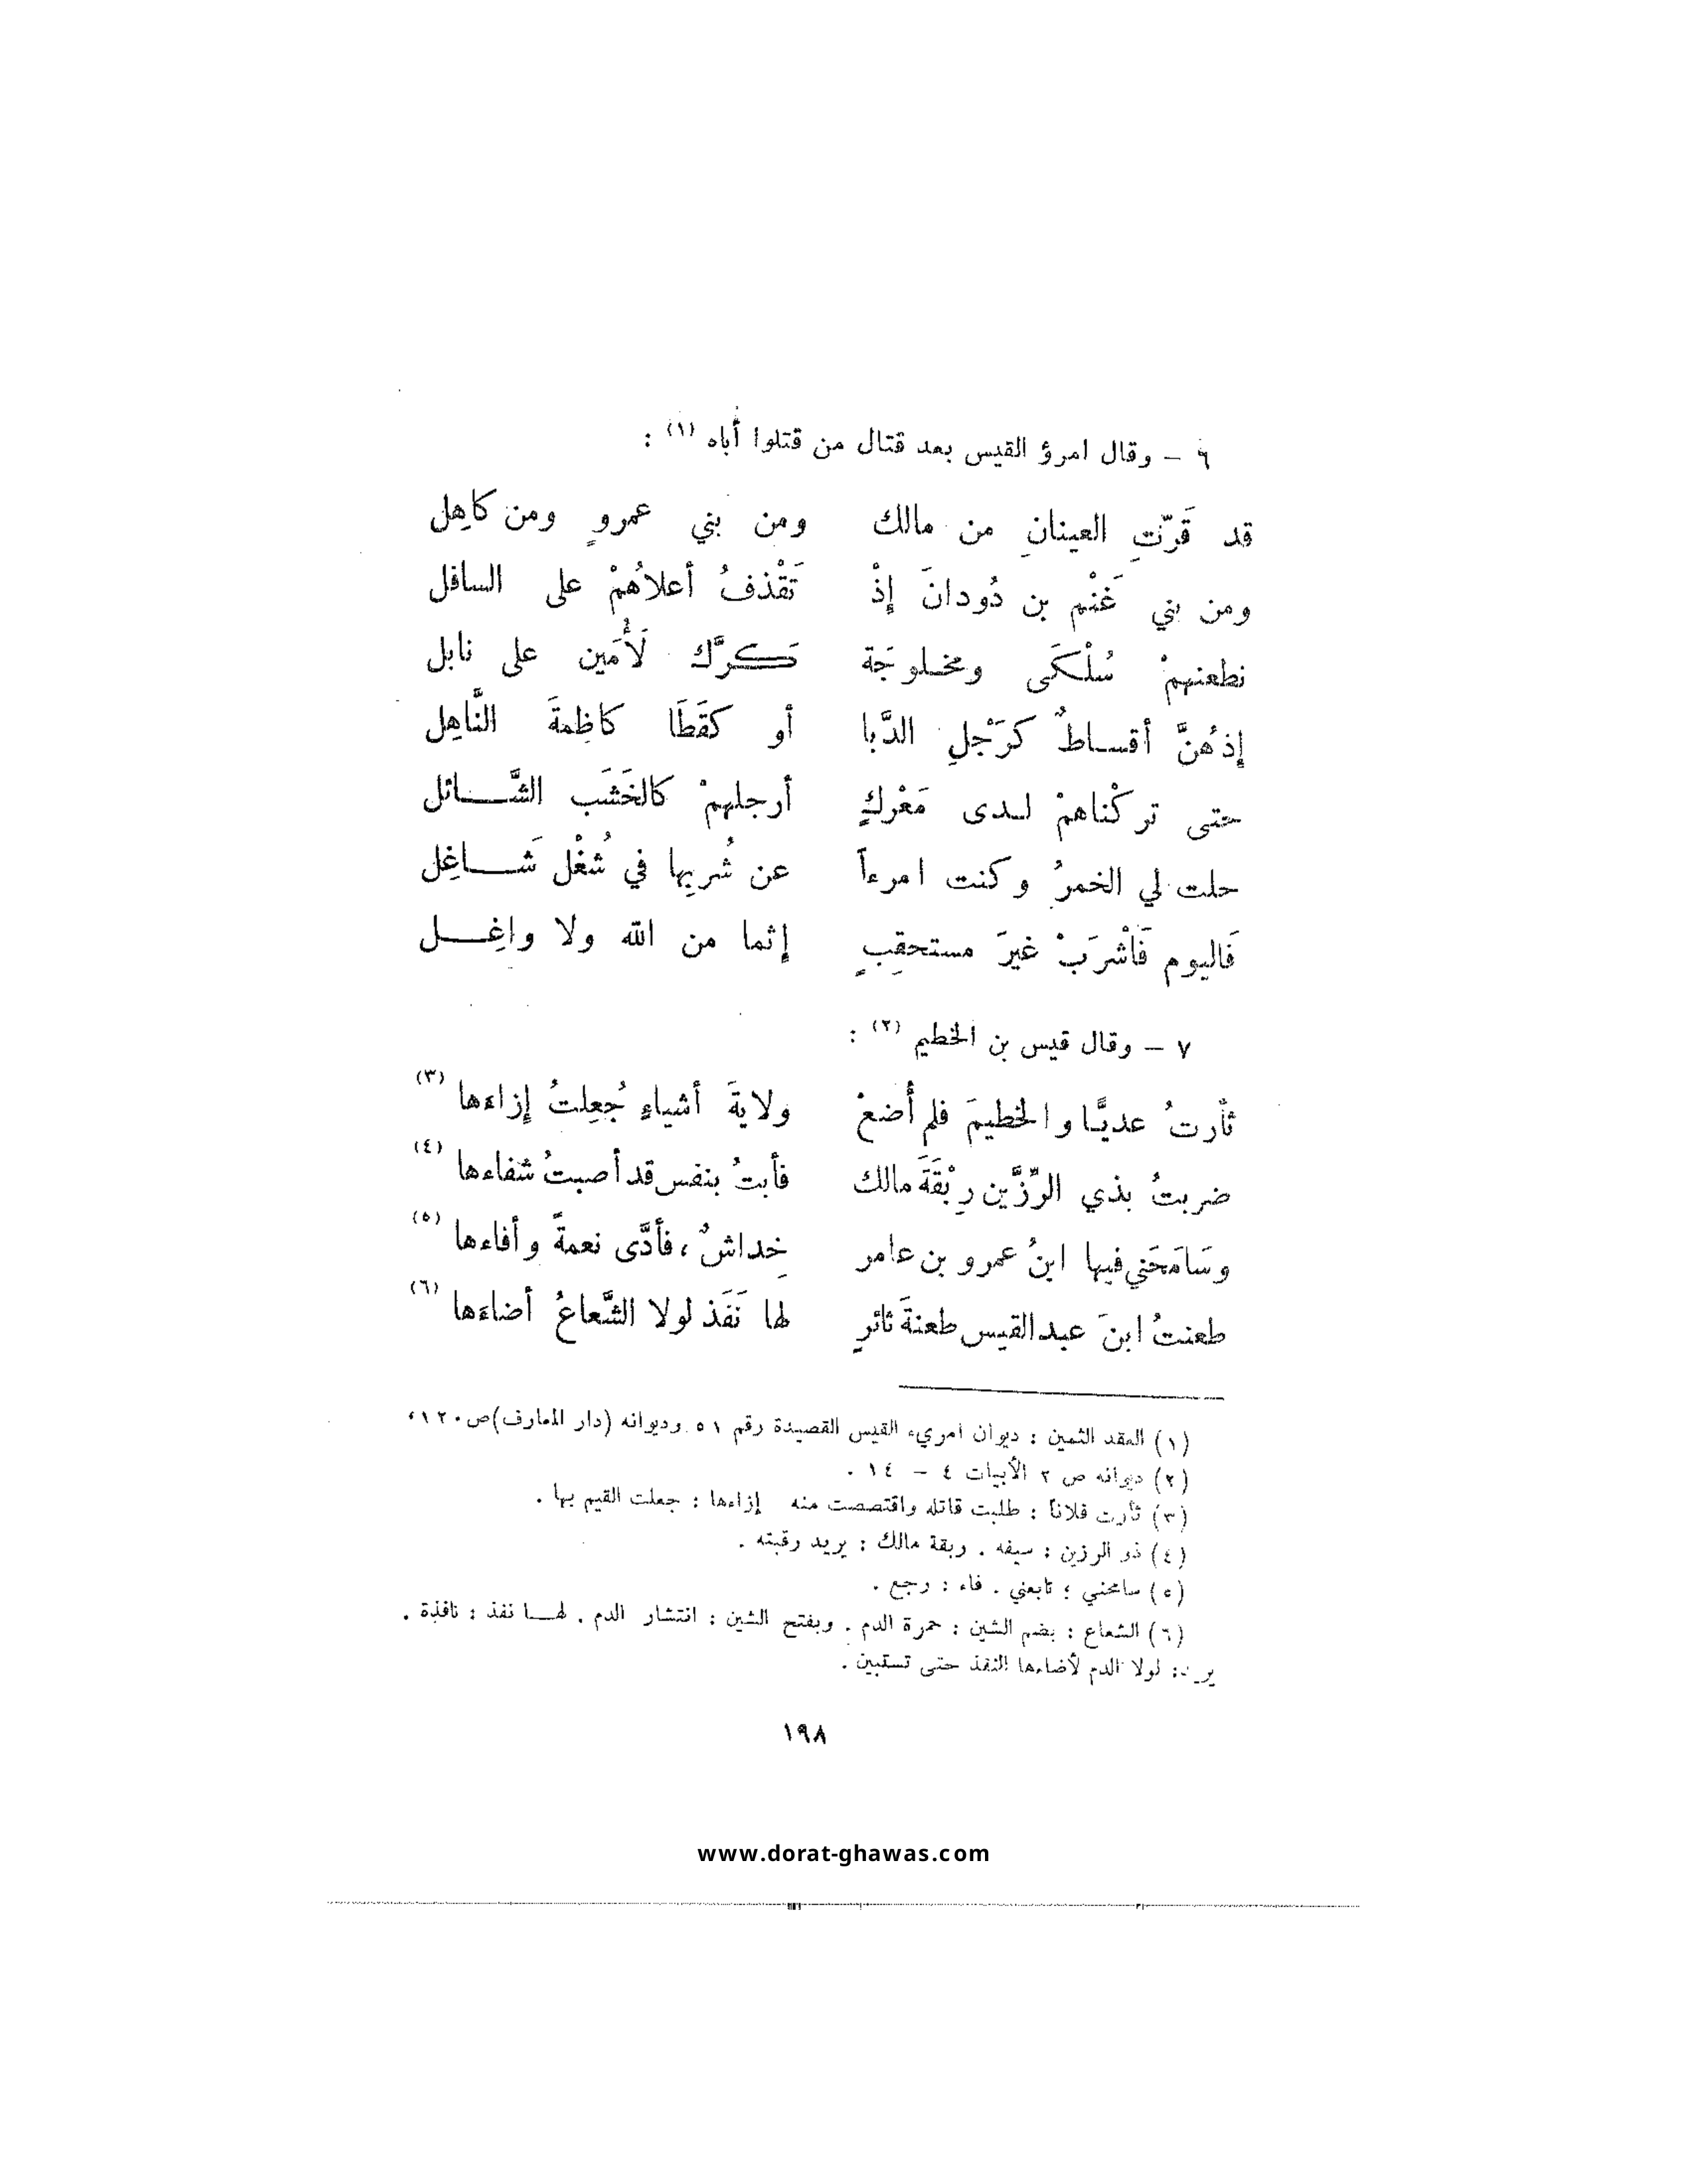 ٦ – وقال امرؤ القيس بعد قتال من قتلوا أباه (١) :
قد قَرّتِ العينانِ من مالك ومن بني عمروٍ ومن كاهِل
ومن بني غَنْم بن دُودانَ إذْ تَقْذفُ أعلاهُمْ على السافل
نطعنهمْ سُلْكَى ومخلوجَة كَرَّك لَأْمَين على نابل
إذهُنَّ أقساطٌ كرَجْلِ الدَّبا أو كقَطَا كاظِمةَ النَّاهِل
حتى تركْناهمْ لدى مَعْركٍ أرجلهمْ كالخَشَب الشَّائل
حلت لي الخمرُ وكنت امرءاً عن شُربِها في شُغْل شَاغِل
فَاليوم فَاْشرَبْ غيرَ مستحقِبٍ إثما من الله ولا واغِل
٧ – وقال قيس بن الخطيم (٢) :
ثأرتُ عديًّا والخطيمَ فلم أُضعْ ولايةَ أشياءٍ جُعِلتُ إزاءها (٣)
ضربتُ بذي الرِّزَّين رِبْقَةَ مالك فأبتُ بنفس قد أصبتُ شفاءها (٤)
وسَامَحَني فيها ابنُ عمرو بن عامر خِداشٌ، فأدَّى نعمةً وأفاءها (٥)
طعنتُ ابنَ عبد القيس طعنةَ ثائرٍ لها نَفَذ لولا الشَّعاعُ أضاءَها (٦)
(١) العقد الثمين : ديوان امريء القيس القصيدة رقم ٥١ وديوانه (دار المعارف) ص ١٢٠،
(٢) ديوانه ص ٢ الأبيات ٤ – ١٤ .
(٣) ثأرت فلاناً : طلبت قاتله واقتصصت منه إزاءها : جعلت القيم بها .
(٤) ذو الرزين : سيفه . وربقة مالك : يريد رقبته .
(٥) سامحني ؛ تابعني . فاء : رجع .
(٦) الشعاع : بضم الشين : حمرة الدم . وبفتح الشين : انتشار الدم . لها نفذ : نافذة .
يريد: لولا الدم لأضاءها النفذ حتى تستبين .
١٩٨
www.dorat-ghawas.com